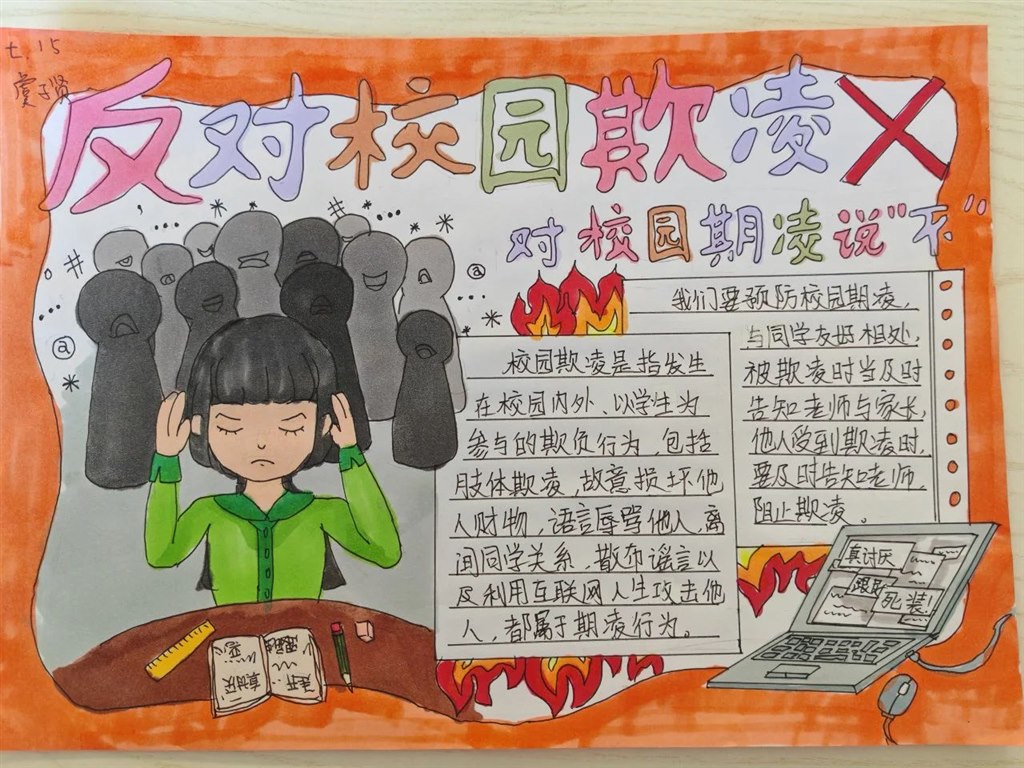 七.15
虞子贤
反对校园欺凌
对校园期凌说"不"
校园欺凌是指发生
在校园内外、以学生为
参与的欺负行为,包括
肢体欺凌,故意损坏他
人财物,语言辱骂他人,离
间同学关系,散布谣言以
及利用互联网人生攻击他
人,都属于期凌行为。
我们要预防校园期凌,
与同学友好相处,
被欺凌时当及时
告知老师与家长,
他人受到欺凌时,
要及时告知老师,
阻止欺凌。
真讨厌
死装!
真讨厌